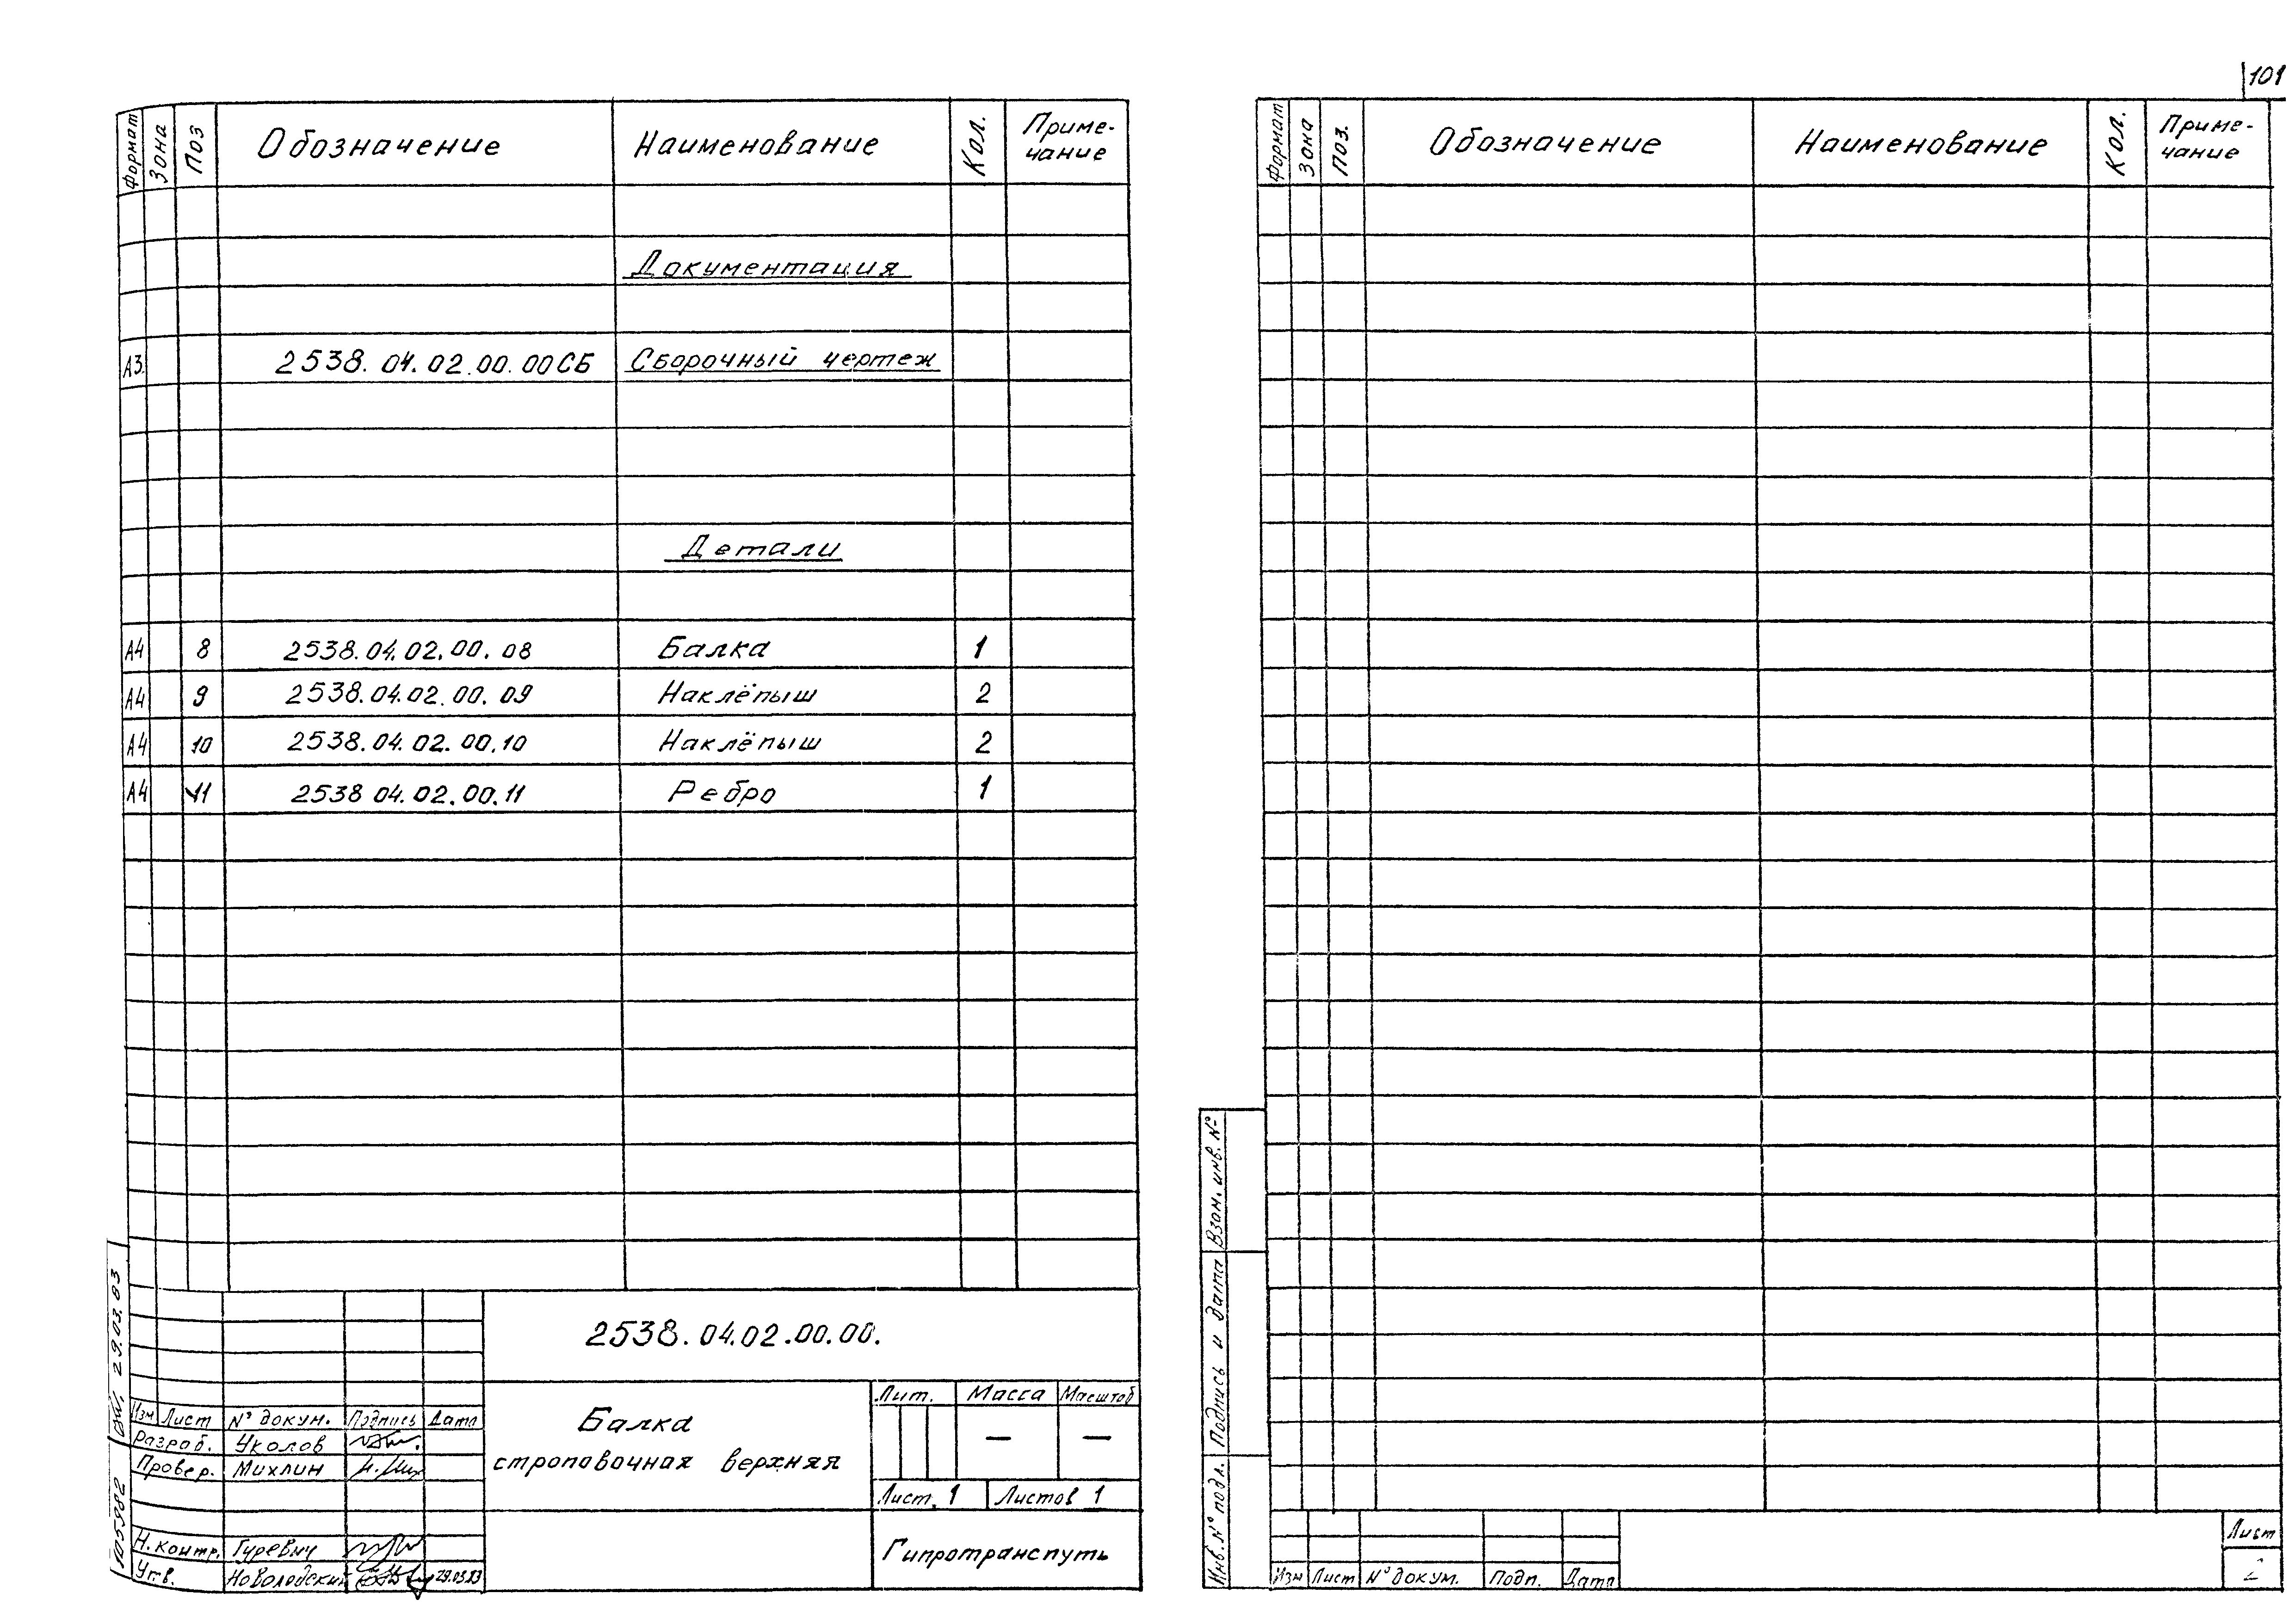 101
Формат Зона Поз Обозначение Наименование Кол. Приме-
чание
Документация
А3 2538.04.02.00.00СБ Сборочный чертеж
Детали
А4 8 2538.04.02.00.08 Балка 1
А4 9 2538.04.02.00.09 Наклёпыш 2
А4 10 2538.04.02.00.10 Наклёпыш 2
А4 11 2538 04.02.00.11 Ребро 1
2538.04.02.00.00.
Изм Лист № докум. Подпись Дата
Разраб. Уколов
Провер. Михлин
Н.контр. Гуревич
Утв. Новолодский 29.03.83
Балка
строповочная верхняя
Лит. Масса Масштаб
— —
Лист. 1 Листов 1
Гипротранспуть
29.03.83
105982
Формат Зона Поз. Обозначение Наименование Кол. Приме-
чание
Взам. инв. №
Подпись и дата
Инв. № подл.
Изм Лист № докум. Подп. Дата
Лист
2